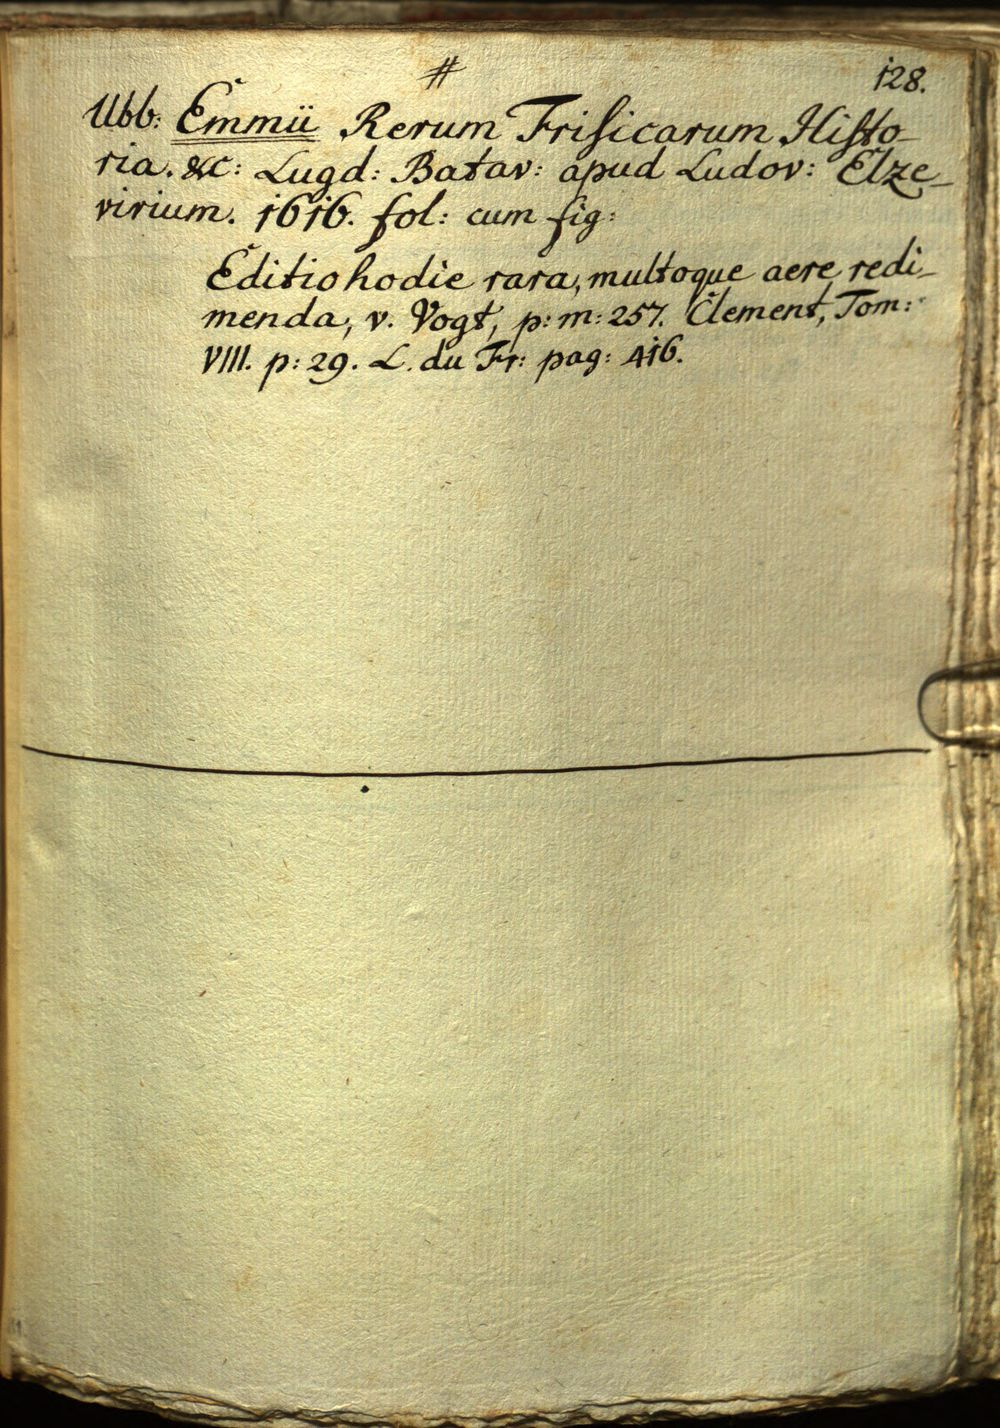 #
128.
Ubb: Emmii Rerum Frisicarum Histo-
ria. &c: Lugd: Batav: apud Ludov: Elze-
virium. 1616. fol: cum fig:
Editio hodie rara, multoque aere redi-
menda, v. Vogt, p: m: 257. Clement, Tom:
VIII. p: 29. L. du Fr: pag: 416.